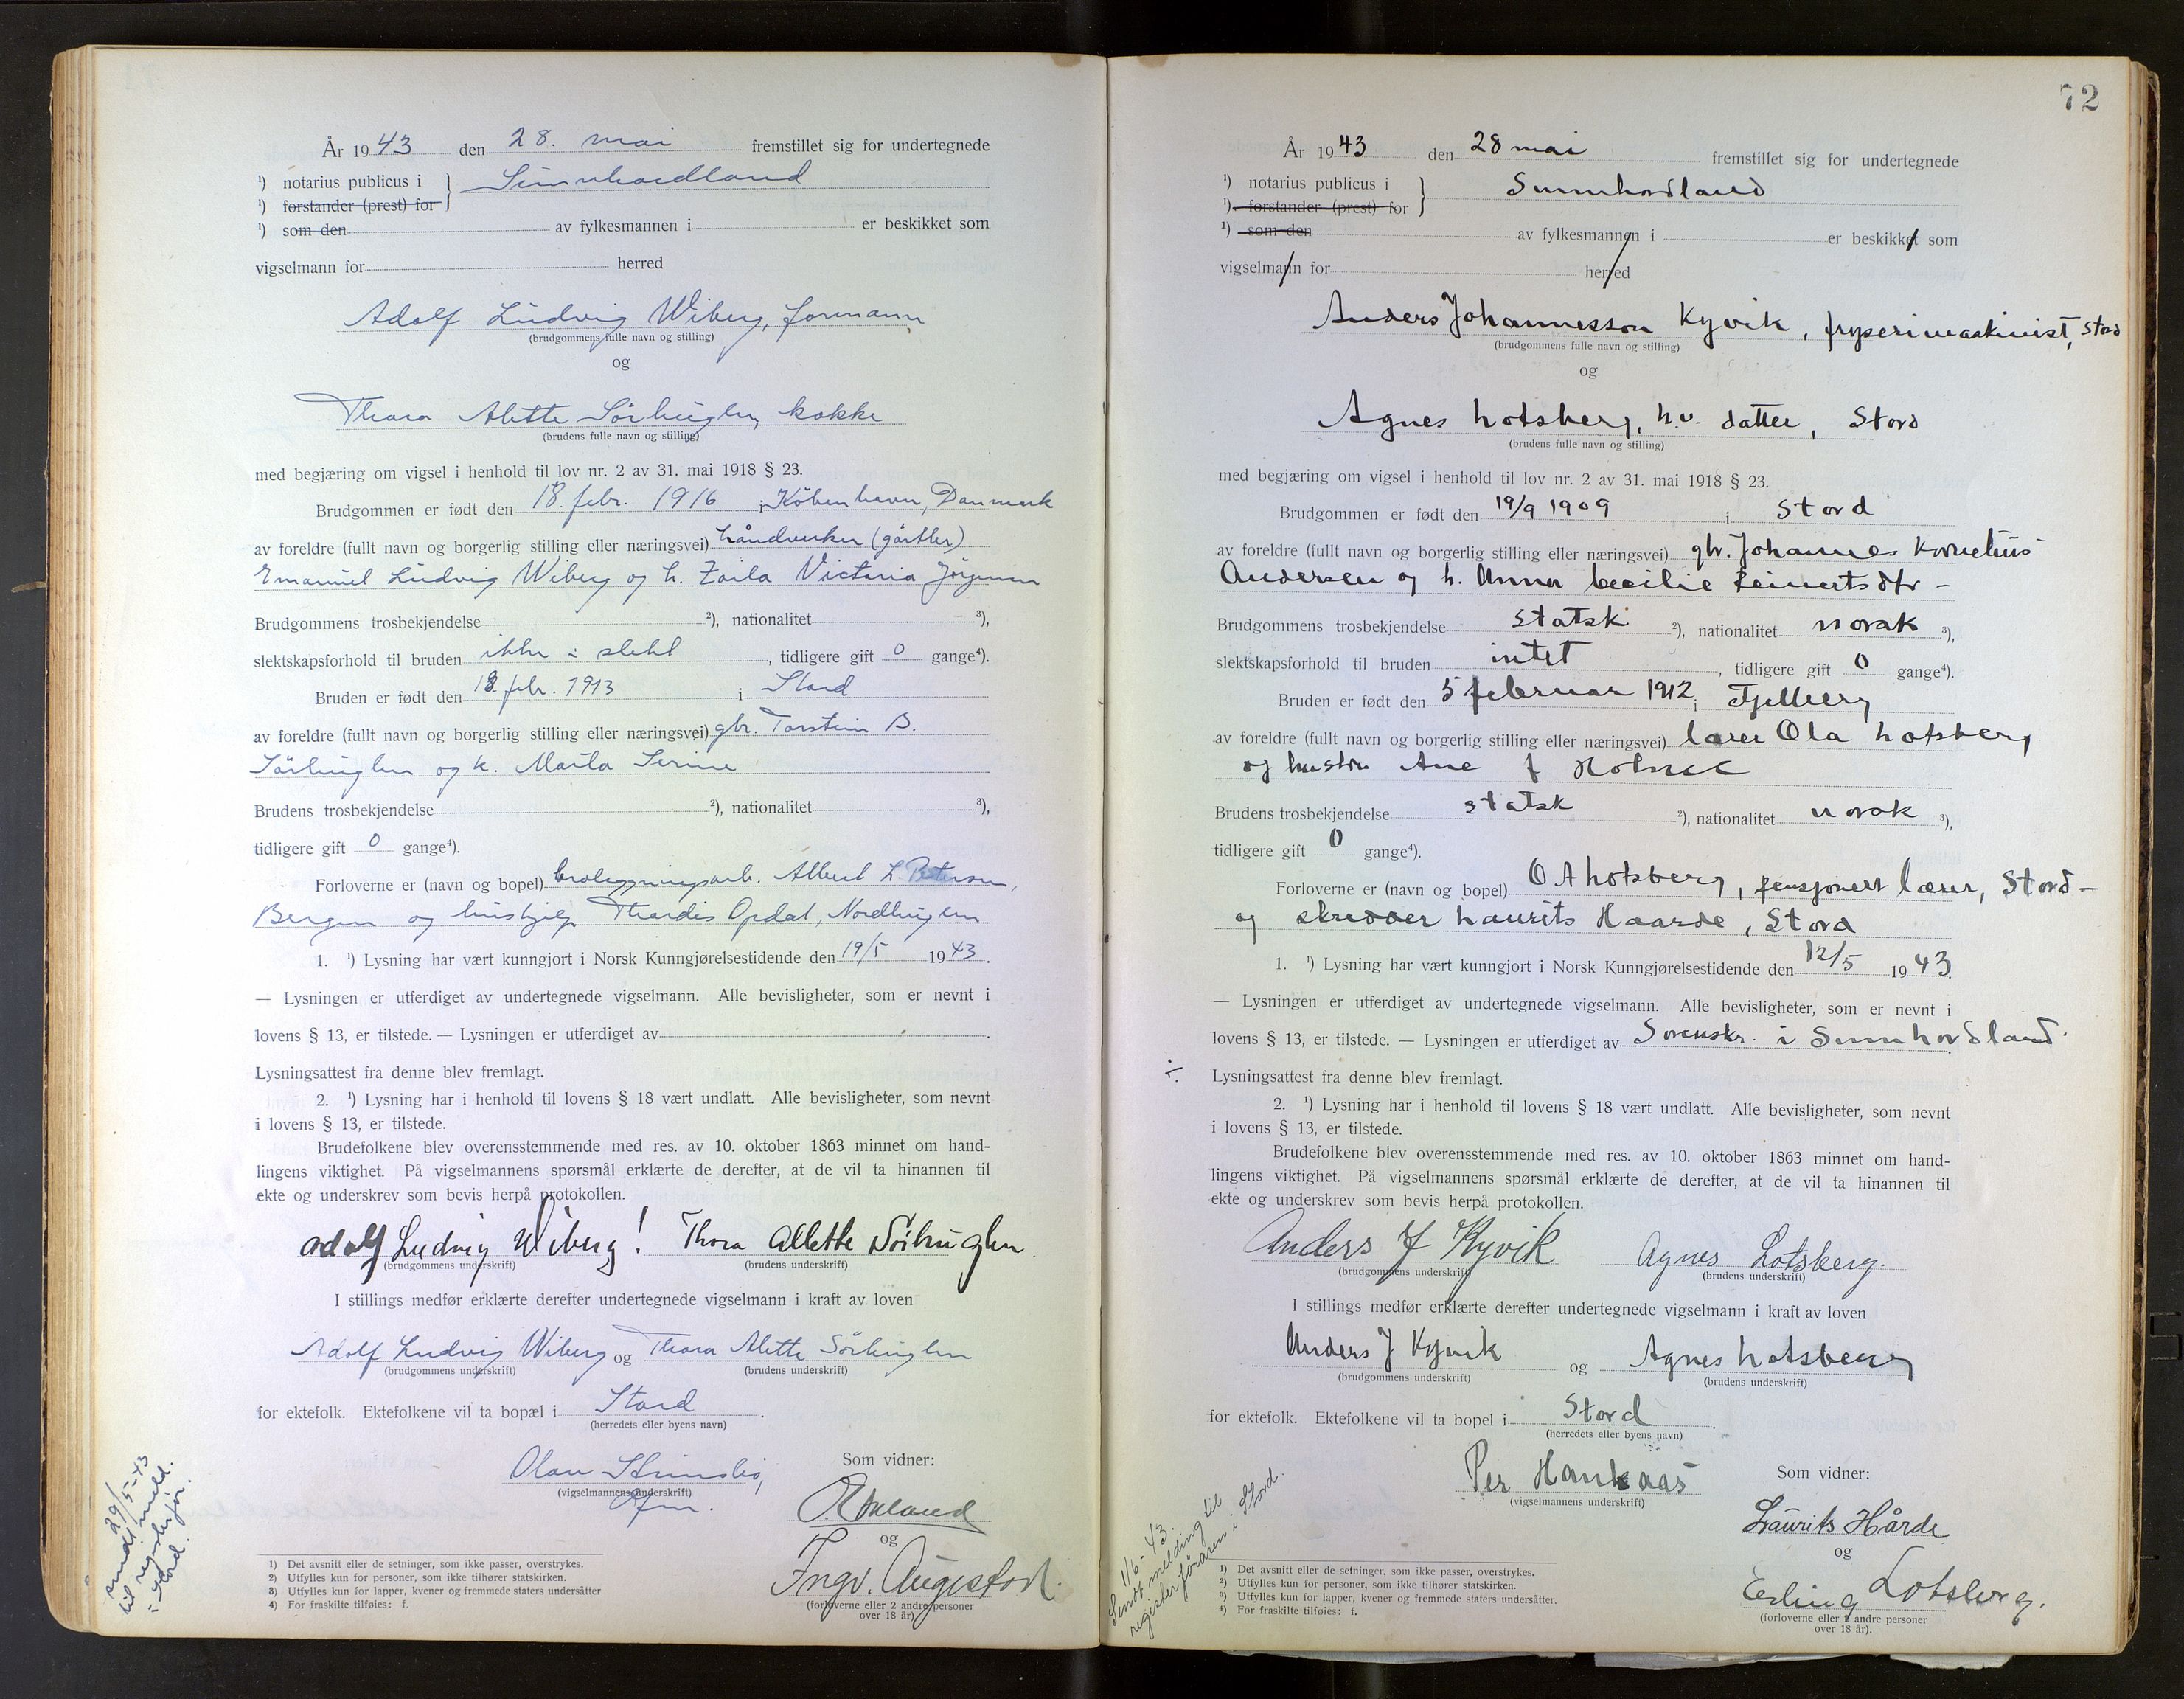 År 1943 den 28. mai fremstillet sig for undertegnede
¹) notarius publicus i } Sunnhordland
¹) forstander (prest) for
¹) som den av fylkesmannen i er beskikket som
vigselmann for herred
Adolf Ludvig Wiberg, formann
(brudgommens fulle navn og stilling)
og
Thora Alette Sörhuglen, kokke
(brudens fulle navn og stilling)
med begjæring om vigsel i henhold til lov nr. 2 av 31. mai 1918 § 23.
Brudgommen er født den 18. febr. 1916 i Köbenhavn, Danmark
av foreldre (fullt navn og borgerlig stilling eller næringsvei) håndverker (görtler)
Emanuel Ludvig Wiberg og h. Zoila Victoria Jörgensen
Brudgommens trosbekjendelse ²), nationalitet ³),
slektskapsforhold til bruden ikke i slekt, tidligere gift 0 gange⁴).
Bruden er født den 18. febr. 1913 i Stord
av foreldre (fullt navn og borgerlig stilling eller næringsvei) gbr. Torstein B.
Sörhuglen og k. Marta Serine
Brudens trosbekjendelse ²), nationalitet ³),
tidligere gift 0 gange⁴).
Forloverne er (navn og bopel) broleggningsarb. Albert L. Petersen,
Bergen og hushjelp Thordis Opdal, Nordhuglen
1. ¹) Lysning har vært kunngjort i Norsk Kunngjørelsestidende den 19/5 1943.
— Lysningen er utferdiget av undertegnede vigselmann. Alle bevisligheter, som er nevnt i
lovens § 13, er tilstede. — Lysningen er utferdiget av .
Lysningsattest fra denne blev fremlagt.
2. ¹) Lysning har i henhold til lovens § 18 vært undlatt. Alle bevisligheter, som nevnt
i lovens § 13, er tilstede.
Brudefolkene blev overensstemmende med res. av 10. oktober 1863 minnet om hand-
lingens viktighet. På vigselmannens spørsmål erklærte de derefter, at de vil ta hinannen til
ekte og underskrev som bevis herpå protokollen.
Adolf Ludvig Wiberg! Thora Allette Sörhuglen
(brudgommens underskrift) (brudens underskrift)
I stillings medfør erklærte derefter undertegnede vigselmann i kraft av loven
Adolf Ludvig Wiberg og Thora Alette Sörhuglen
(brudgommens underskrift) (brudens underskrift)
for ektefolk. Ektefolkene vil ta bopæl i Stord.
(herredets eller byens navn)
Olav
(vigselmannens underskrift)
Som vidner:
og
Ingv. Augestad
(forloverne eller 2 andre personer
over 18 år).
29/5-43
sendt meld.
til reg.sterför.
i Stord.
1) Det avsnitt eller de setninger, som ikke passer, overstrykes.
2) Utfylles kun for personer, som ikke tilhører statskirken.
3) Utfylles kun for lapper, kvener og fremmede staters undersåtter
4) For fraskilte tilføies: f.
72
År 1943 den 28 mai fremstillet sig for undertegnede
¹) notarius publicus i } Sunnhordland
¹) forstander (prest) for
¹) som den av fylkesmannen i er beskikket som
vigselmann for herred
Anders Johannesson Kyvik, fryserimaskinist, Stord
(brudgommens fulle navn og stilling)
og
Agnes Lotsberg, h.v. datter, Stord
(brudens fulle navn og stilling)
med begjæring om vigsel i henhold til lov nr. 2 av 31. mai 1918 § 23.
Brudgommen er født den 19/9 1909 i Stord
av foreldre (fullt navn og borgerlig stilling eller næringsvei) gbr. Johannes Kornelius
Andersen og h. Anna Cecilie Reinertsdtr -
Brudgommens trosbekjendelse statsk ²), nationalitet norsk ³),
slektskapsforhold til bruden intet, tidligere gift 0 gange⁴).
Bruden er født den 5 februar 1912 i Fjelberg
av foreldre (fullt navn og borgerlig stilling eller næringsvei) lærer Ola Lotsberg
og hustru Ane J
Brudens trosbekjendelse statsk ²), nationalitet norsk ³),
tidligere gift 0 gange⁴).
Forloverne er (navn og bopel) O A Lotsberg, pensjonert lærer, Stord -
og skredder Laurits Haarde, Stord
1. ¹) Lysning har vært kunngjort i Norsk Kunngjørelsestidende den 12/5 1943.
— Lysningen er utferdiget av undertegnede vigselmann. Alle bevisligheter, som er nevnt i
lovens § 13, er tilstede. — Lysningen er utferdiget av Sorenskr. i Sunnhordland.
÷ Lysningsattest fra denne blev fremlagt.
2. ¹) Lysning har i henhold til lovens § 18 vært undlatt. Alle bevisligheter, som nevnt
i lovens § 13, er tilstede.
Brudefolkene blev overensstemmende med res. av 10. oktober 1863 minnet om hand-
lingens viktighet. På vigselmannens spørsmål erklærte de derefter, at de vil ta hinannen til
ekte og underskrev som bevis herpå protokollen.
Anders J Kyvik Agnes Lotsberg.
(brudgommens underskrift) (brudens underskrift)
I stillings medfør erklærte derefter undertegnede vigselmann i kraft av loven
Anders J Kyvik og Agnes Lotsberg
(brudgommens underskrift) (brudens underskrift)
for ektefolk. Ektefolkene vil ta bopel i Stord.
(herredets eller byens navn)
Per Haukaas
(vigselmannens underskrift)
Som vidner:
Laurits Hårde
og
Erling Lotsberg.
(forloverne eller 2 andre personer
over 18 år).
1/6-43.
Sendt melding til
registerföraren i Stord.
¹) Det avsnitt eller de setninger, som ikke passer, overstrykes.
²) Utfylles kun for personer, som ikke tilhører statskirken.
³) Utfylles kun for lapper, kvener og fremmede staters undersåtter.
⁴) For fraskilte tilføies: f.